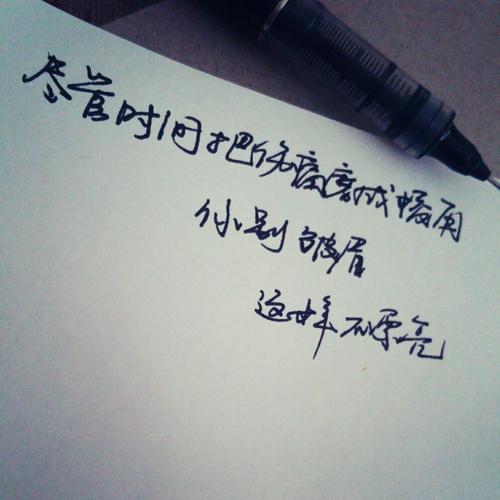 尽管时间把磨成
你别皱眉
这样不漂亮